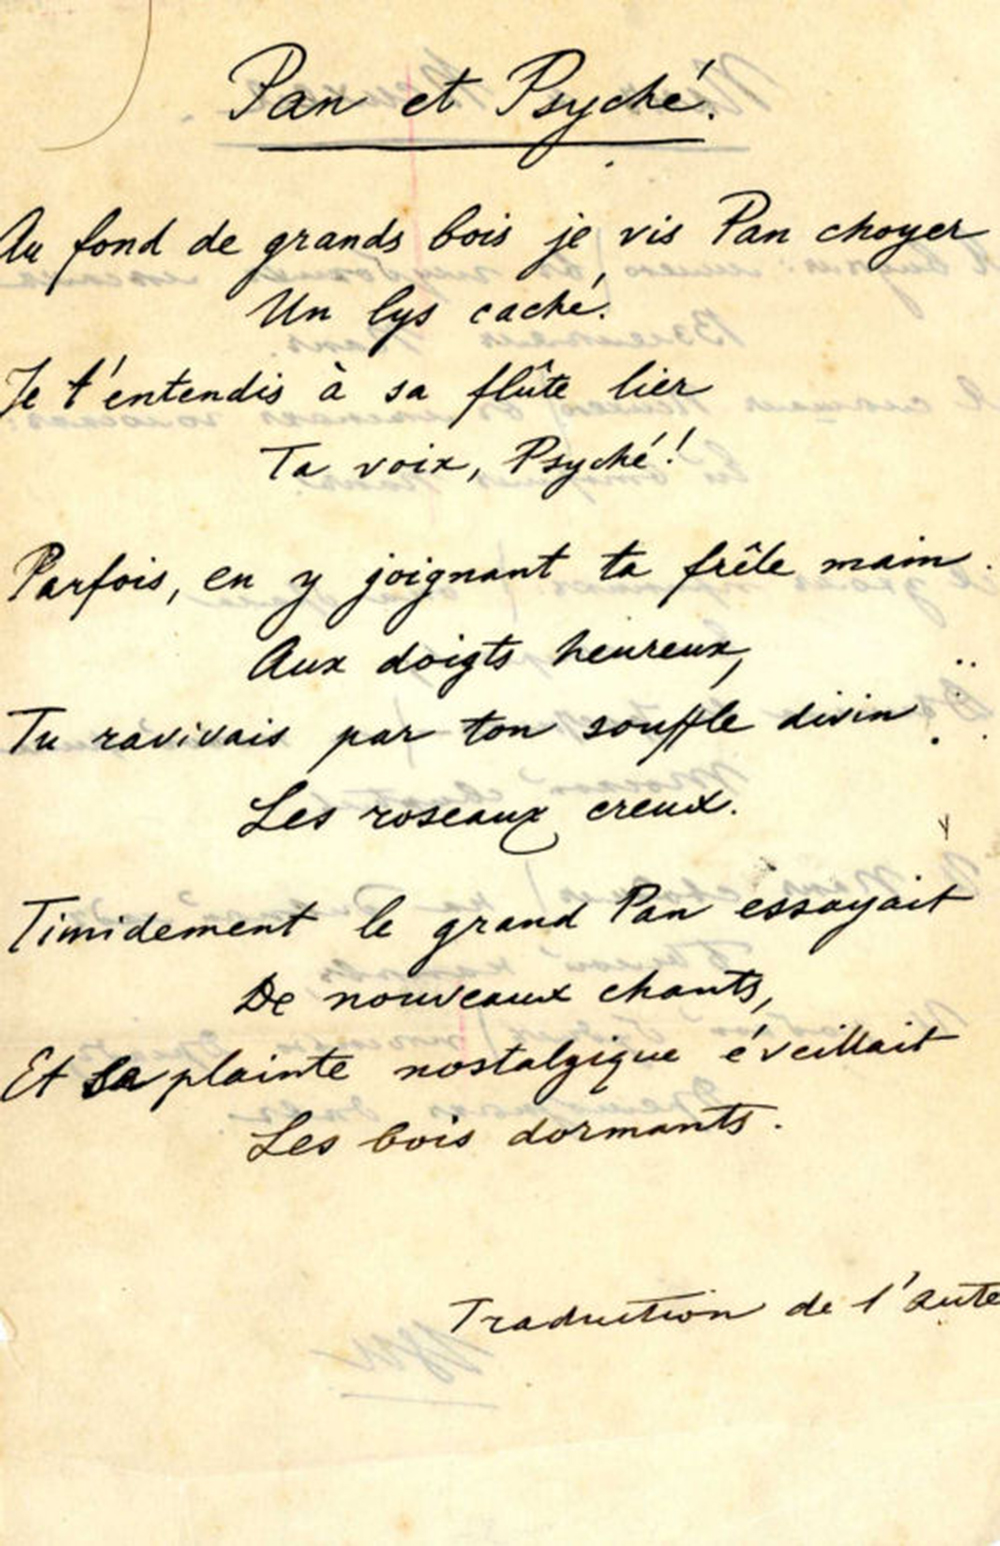 Pan et Psyché.
Au fond de grands bois je vis Pan choyer
Un lys caché.
Je t'entendis à sa flûte lier
Ta voix, Psyché!
Parfois, en y joignant ta frêle main
Aux doigts heureux,
Tu ravivais par ton souffle divin
Les roseaux creux.
Timidement le grand Pan essayait
De nouveaux chants,
Et sa plainte nostalgique éveillait
Les bois dormants.
Traduction de l'aute